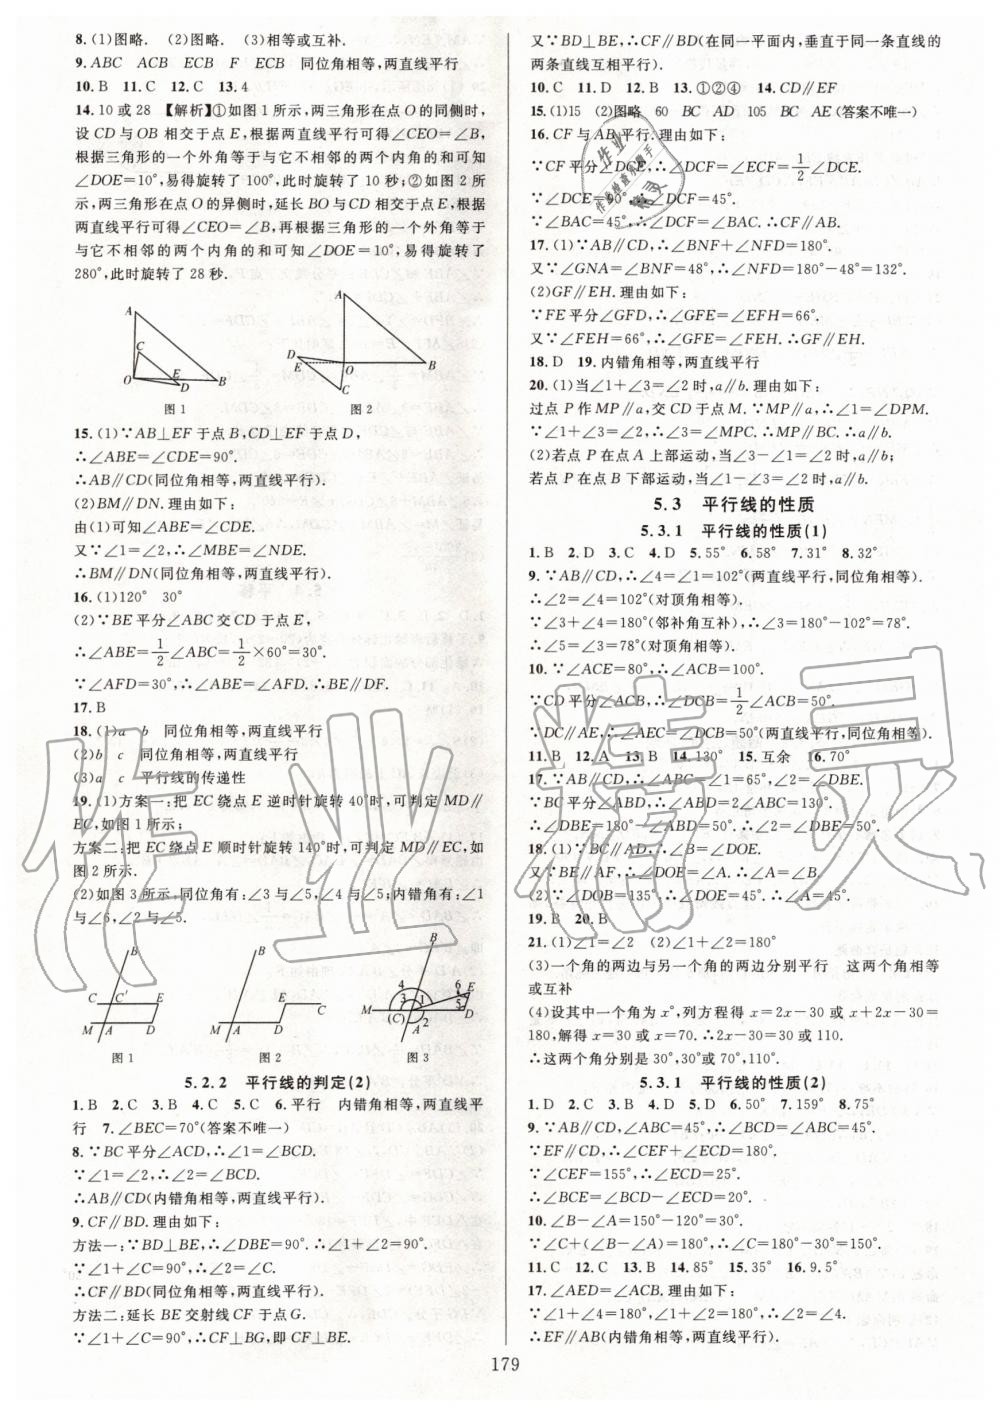 8. (1)图略. (2)图略. (3)相等或互补.
9. ABC ACB ECB F ECB 同位角相等,两直线平行
10. B 11. C 12. C 13. 4
14. 10或28 【解析】①如图1所示,两三角形在点O的同侧时,
设CD与OB相交于点E,根据两直线平行可得∠CEO=∠B,
根据三角形的一个外角等于与它不相邻的两个内角的和可知
∠DOE=10°,易得旋转了100°,此时旋转了10秒;②如图2所
示,两三角形在点O的异侧时,延长BO与CD相交于点E,根据
两直线平行可得∠CEO=∠B,再根据三角形的一个外角等于
与它不相邻的两个内角的和可知∠DOE=10°,易得旋转了
280°,此时旋转了28秒.
A
C
O
E
D
B
图1
A
D
E
O
B
C
图2
15. (1)∵AB⊥EF于点B,CD⊥EF于点D,
∴∠ABE=∠CDE=90°.
∴AB∥CD(同位角相等,两直线平行).
(2)BM∥DN.理由如下:
由(1)可知∠ABE=∠CDE.
又∵∠1=∠2,∴∠MBE=∠NDE.
∴BM∥DN(同位角相等,两直线平行).
16. (1)120° 30°
(2)∵BE平分∠ABC交CD于点E,
∴∠ABE=1/2∠ABC=1/2×60°=30°.
∵∠AFD=30°,∴∠ABE=∠AFD.∴BE∥DF.
17. B
18. (1)a b 同位角相等,两直线平行
(2)b c 同位角相等,两直线平行
(3)a c 平行线的传递性
19. (1)方案一:把EC绕点E逆时针旋转40°时,可判定MD∥
EC,如图1所示;
方案二:把EC绕点E顺时针旋转140°时,可判定MD∥EC,如
图2所示.
(2)如图3所示,同位角有:∠3与∠5,∠4与∠5;内错角有:∠1
与∠6,∠2与∠5.
B
C C′ E
M A D
图1
B
E
C
M A D
图2
B
4
3 1
6 E
5
M (C) A
2
D
图3
5.2.2 平行线的判定(2)
1. B 2. C 3. B 4. C 5. C 6. 平行 内错角相等,两直线平
行 7. ∠BEC=70°(答案不唯一)
8. ∵BC平分∠ACD,∴∠1=∠BCD.
∵∠1=∠2,∴∠2=∠BCD.
∴AB∥CD(内错角相等,两直线平行).
9. CF∥BD.理由如下:
方法一:∵BD⊥BE,∴∠DBE=90°.∴∠1+∠2=90°.
∵∠1+∠C=90°,∴∠2=∠C.
∴CF∥BD(同位角相等,两直线平行).
方法二:延长BE交射线CF于点G.
∵∠1+∠C=90°,∴CF⊥BG,即CF⊥BE.
又∵BD⊥BE,∴CF∥BD(在同一平面内,垂直于同一条直线的
两条直线互相平行).
10. C 11. D 12. B 13. ①②④ 14. CD∥EF
15. (1)15 (2)图略 60 BC AD 105 BC AE(答案不唯一)
16. CF与AB平行.理由如下:
∵CF平分∠DCE,∴∠DCF=∠ECF=1/2∠DCE.
∵∠DCE=90°,∴∠DCF=45°.
∵∠BAC=45°,∴∠DCF=∠BAC.∴CF∥AB.
17. (1)∵AB∥CD,∴∠BNF+∠NFD=180°.
又∵∠GNA=∠BNF=48°,∴∠NFD=180°-48°=132°.
(2)GF∥EH.理由如下:
∵FE平分∠GFD,∴∠GFE=∠EFH=66°.
又∵∠FEH=66°,∴∠GFE=∠FEH.∴GF∥EH.
18. D 19. 内错角相等,两直线平行
20. (1)当∠1+∠3=∠2时,a∥b.理由如下:
过点P作MP∥a,交CD于点M.∵MP∥a,∴∠1=∠DPM.
∵∠1+∠3=∠2,∴∠3=∠MPC.∴MP∥BC.∴a∥b.
(2)若点P在点A上部运动,当∠3-∠1=∠2时,a∥b;
若点P在点B下部运动,当∠1-∠3=∠2时,a∥b.
5.3 平行线的性质
5.3.1 平行线的性质(1)
1. B 2. D 3. C 4. D 5. 55° 6. 58° 7. 31° 8. 32°
9. ∵AB∥CD,∴∠4=∠1=102°(两直线平行,同位角相等).
∴∠2=∠4=102°(对顶角相等).
∵∠3+∠4=180°(邻补角互补),∴∠3=180°-102°=78°.
∴∠5=∠3=78°(对顶角相等).
10. ∵∠ACE=80°,∴∠ACB=100°.
∵CD平分∠ACB,∴∠DCB=1/2∠ACB=50°.
∵DC∥AE,∴∠A​EC=∠DCB=50°(两直线平行,同位角相等).
11. B 12. A 13. B 14. 130° 15. 互余 16. 70°
17. ∵AB∥CD,∴∠ABC=∠1=65°,∠2=∠DBE.
∵BC平分∠ABD,∴∠ABD=2∠ABC=130°.
∴∠DBE=180°-∠ABD=50°.∴∠2=∠DBE=50°.
18. (1)∵BC∥AD,∴∠B=∠DOE.
又∵BE∥AF,∴∠DOE=∠A.∴∠A=∠B.
(2)∵∠DOB=135°,∴∠DOE=45°.∴∠A=45°.
19. B 20. B
21. (1)∠1=∠2 (2)∠1+∠2=180°
(3)一个角的两边与另一个角的两边分别平行 这两个角相等
或互补
(4)设其中一个角为x°,列方程得x=2x-30或x+2x-30=
180,解得x=30或x=70.∴2x-30=30或2x-30=110.
∴这两个角分别是30°,30°或70°,110°.
5.3.1 平行线的性质(2)
1. D 2. C 3. C 4. D 5. D 6. 50° 7. 159° 8. 75°
9. ∵AB∥CD,∴∠BCD=∠ABC=45°.
∵EF∥CD,∴∠CEF+∠ECD=180°.
∵∠CEF=155°,∴∠ECD=25°.
∴∠BCE=∠BCD-∠ECD=20°.
10. ∠B-∠A=150°-120°=30°.
∵∠C+(∠B-∠A)=180°,∴∠C=180°-30°=150°.
11. C 12. C 13. D 14. 85° 15. 35° 16. 9.5°
17. ∠AED=∠ACB.理由如下:
∵∠1+∠4=180°,∠1+∠2=180°,∴∠2=∠4.
∴EF∥AB(内错角相等,两直线平行).
179
作业精灵